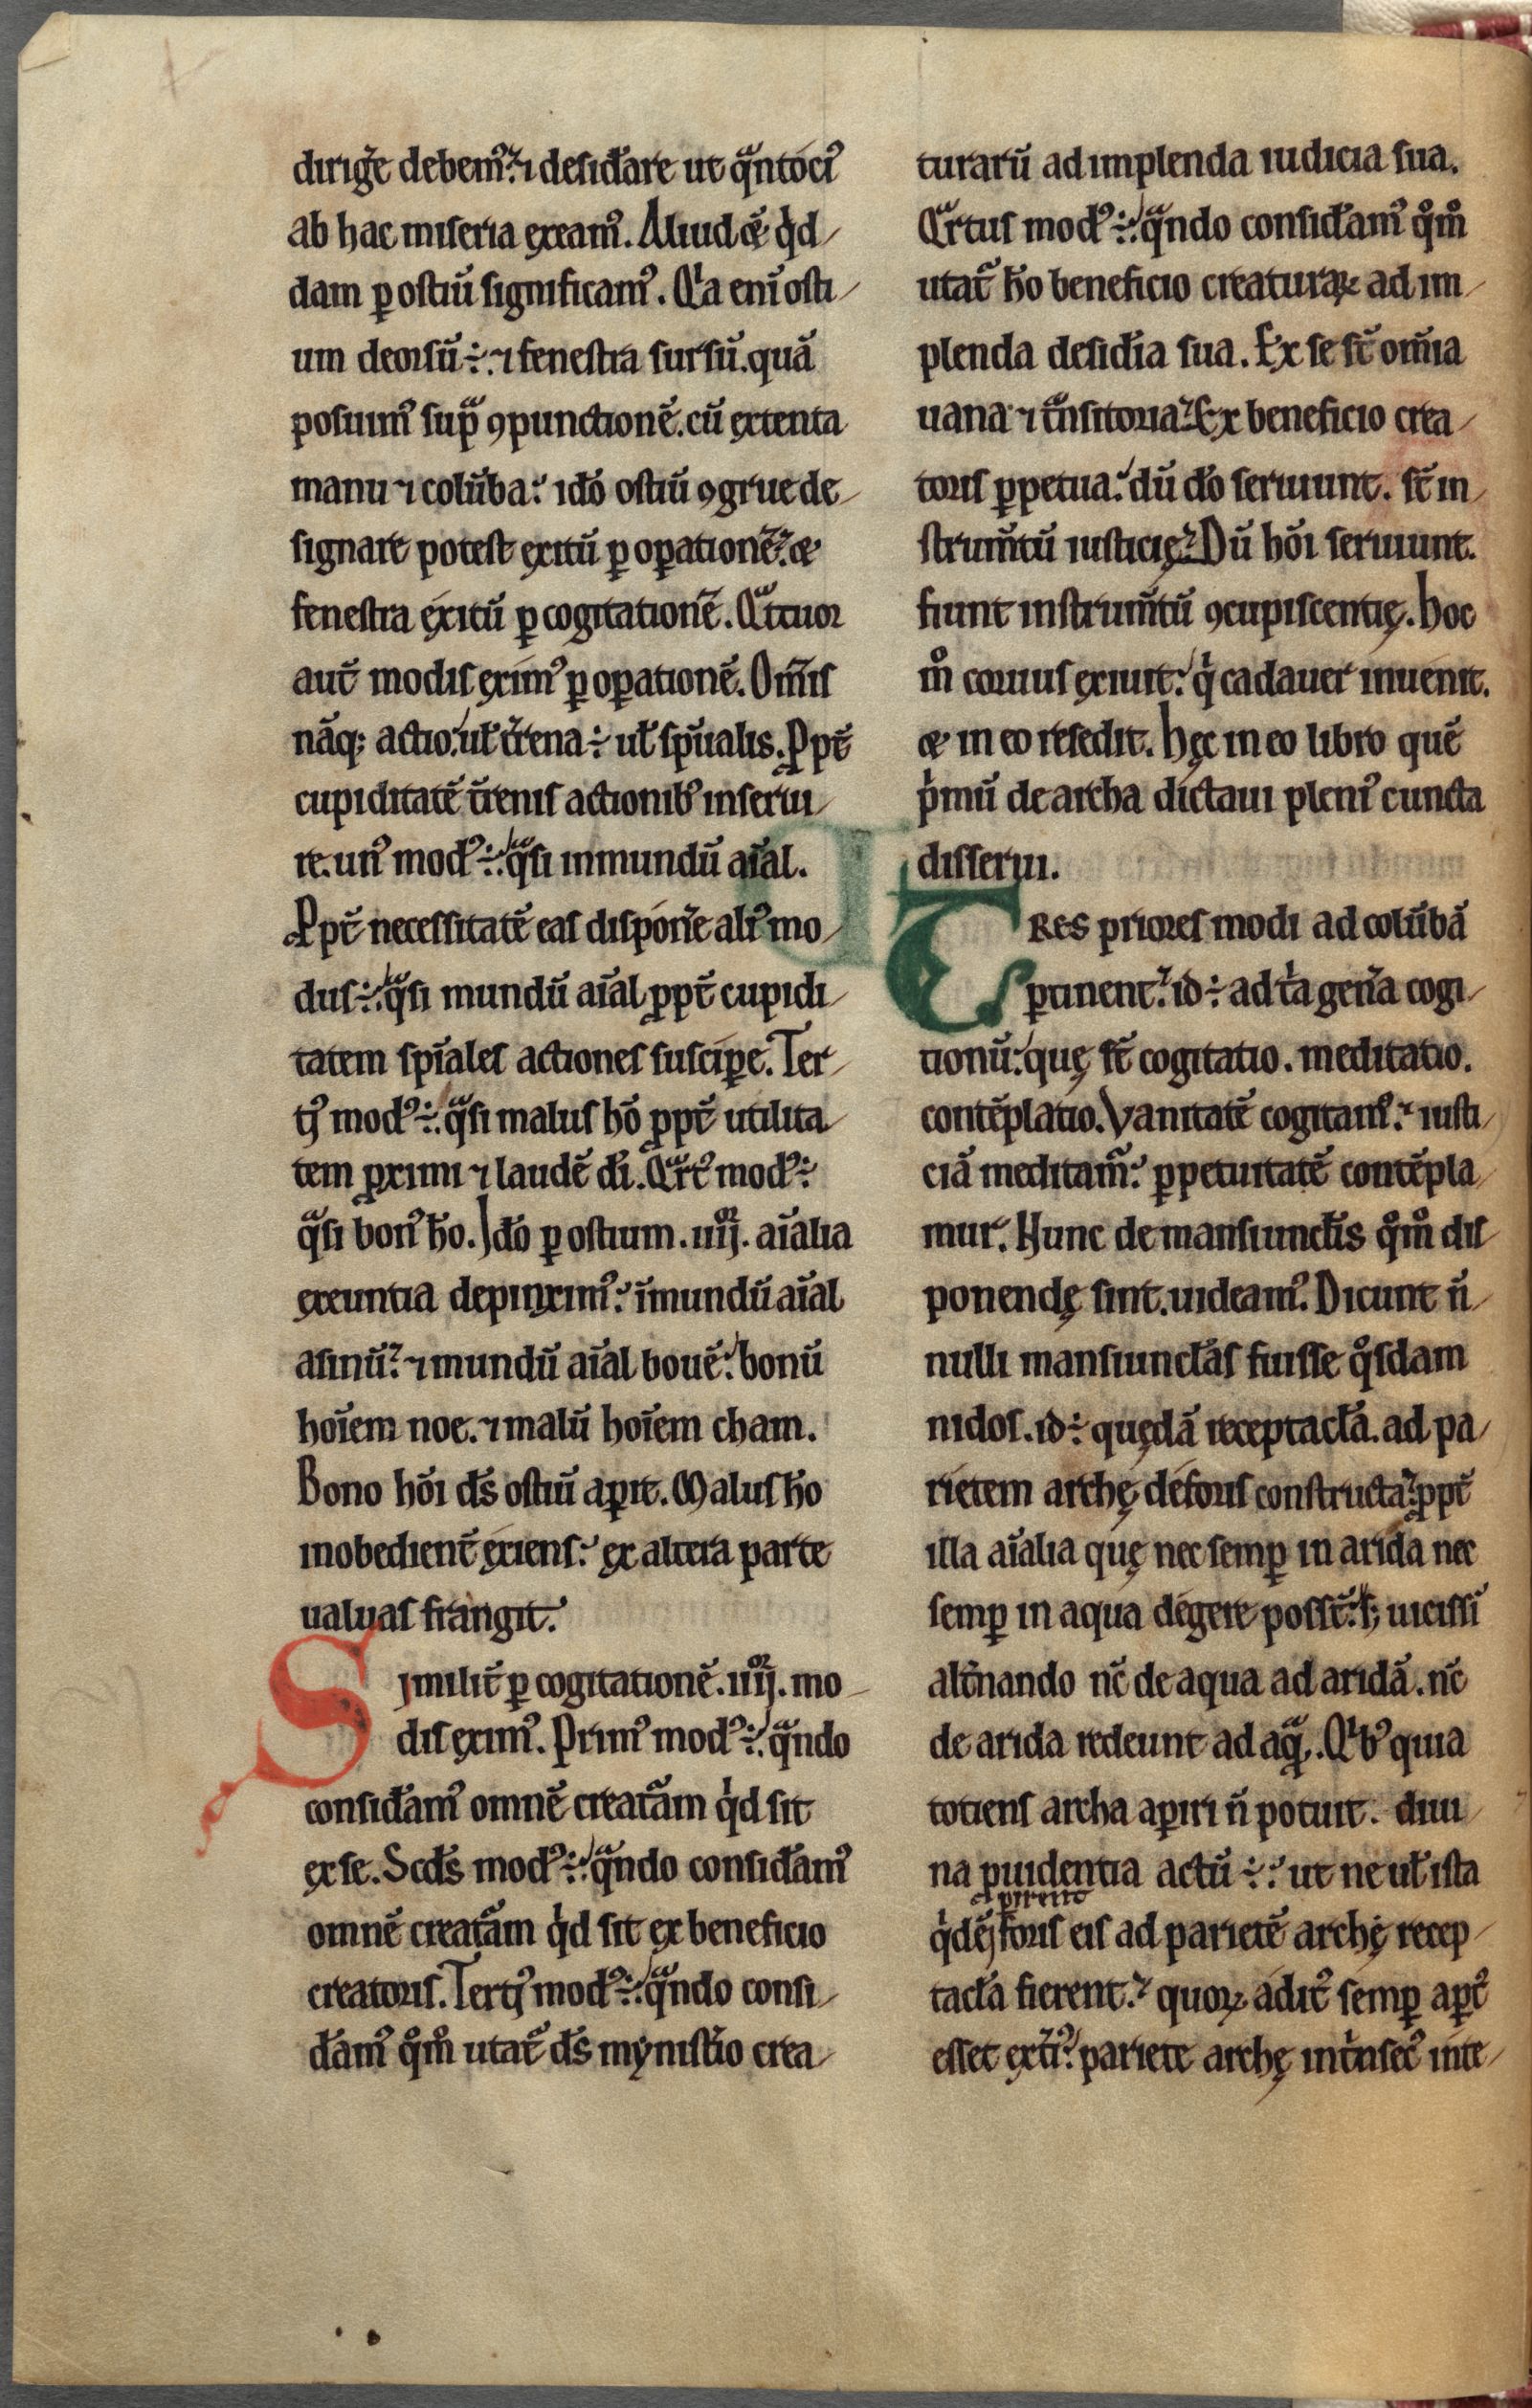 dirigẽ debemꝰ. ⁊ desidãre ut qͣntoci᷒
ab hac miseria exeamꝰ. Aliud ē qͥd
dam ꝑ ostiū significamꝰ. Qͥa eni ̄ osti
um deorsū ÷. ⁊ fenestra sursū. quā
posuimꝰ supͣ ꝯpunctionē. cū extenta
manu ⁊ colūba: idō ostiū ꝯgrue de
signare potest exitū ꝑ oꝑationē. &
fenestra exitū ꝑ cogitationē. Qͣttuor
aut̄ modis eximꝰ ꝑ oꝑationē. Om̄is
nāq; actio. ul̄ t̄rena ÷ ul̄ spūalis. Ꝓpt̄
cupiditatē t̄renis actionibꝰ inserui
re. unꝰ modꝰ ÷. qͣsi inmundū aīal.
Ꝓpt̄ necessitatē eas disponẽ aliꝰ mo
dus ÷. qͣsi mundū aīal ꝓpt̄ cupidi
tatem spīales actiones susciꝑe. Ter
tiꝰ modꝰ ÷. qͣsi malus hō ꝓpt̄ utilita
tem ꝓximi ⁊ laudē dī. Qͣrtꝰ modꝰ ÷
qͣsi bonꝰ ho̅. Idō ꝑ ostium .iiiiᵒʳ. aīalia
exeuntia depinximꝰ: īmundū aīal
asinū. ⁊ mundū aīal bouē. bonū
hoīem noe. ⁊ malū hoīem cham.
Bono hōi ds̄ ostiū aꝑit. Malus ho̅
inobedient̄ exiens: ex altera parte
ualuas frangit.
Similit̄ ꝑ cogitationē .iiiiᵒʳ. mo
dis eximꝰ. Primꝰ modꝰ ÷. qͣndo
consid̄amꝰ omnē creatͣam qͥd sit
ex se. Scd̄s modꝰ ÷. qͣndo consid̄amꝰ
omnē creatͣam qͥd sit ex beneficio
creatoris. Tertiꝰ modꝰ ÷. qͣndo consi
d̄amꝰ qͦmͦ utat᷑ ds̄ mynist̄io crea
turarū ad implenda iudicia sua.
Qͣrtus modꝰ ÷. qͣndo consid̄amꝰ qͦmͦ
utat᷑ ho̅ beneficio creaturaꝝ ad im
plenda desid̄ia sua. Ex se st̄ om̄ia
uana ⁊ tͣnsitoria. Ex beneficio crea
toris ꝑpetua. dū dō seruiunt. st̄ in
strum̄tū iusticię. Dū hōi seruiunt.
fiunt instrum̄tū ꝯcupiscentię. hoc
mͦ coruus exiuit: qͥ cadauer inuenit.
& in eo resedit. hęc in eo libro quē
pͥmū de archa dictaui pleniꝰ cuncta
disserui.
Tres priores modi ad colūbā
ꝑtinent. id ÷ ad tͥa geña cogi
tionū. quę st̄ cogitatio. meditatio.
contēplatio. Vanitatē cogitamꝰ. iusti
ciā meditam᷑. ꝑpetuitatē contēpla
mur. Hunc de mansiuncl̄is qͦmͦ dis
ponendę sint. uideamꝰ. Dicunt ñ
nulli mansiuncl̄as fuisse qͦsdam
nidos. id ÷ quędā receptacl̄a. ad pa
rietem archę deforis constructa. ꝓpt̄
illa aīalia quę nec semꝑ in arida nec
semꝑ in aqua degere possēt. s; uicissī
alt̄nando nc̄ de aqua ad aridā. nc̄
de arida redeunt ad aqͣ. Qͥbꝰ quia
totiens archa aꝑiri ñ potuit. diui
na ꝓuidentia actū ÷: ut ne ul̄ ista
ꝑirent
qͥdē foris eis ad parietē archę recep
tacl̄a fierent. quoꝝ aditꝰ semꝑ aꝑtꝰ
esset ext̄iꝰ. pariete archę intͥnsecꝰ inte